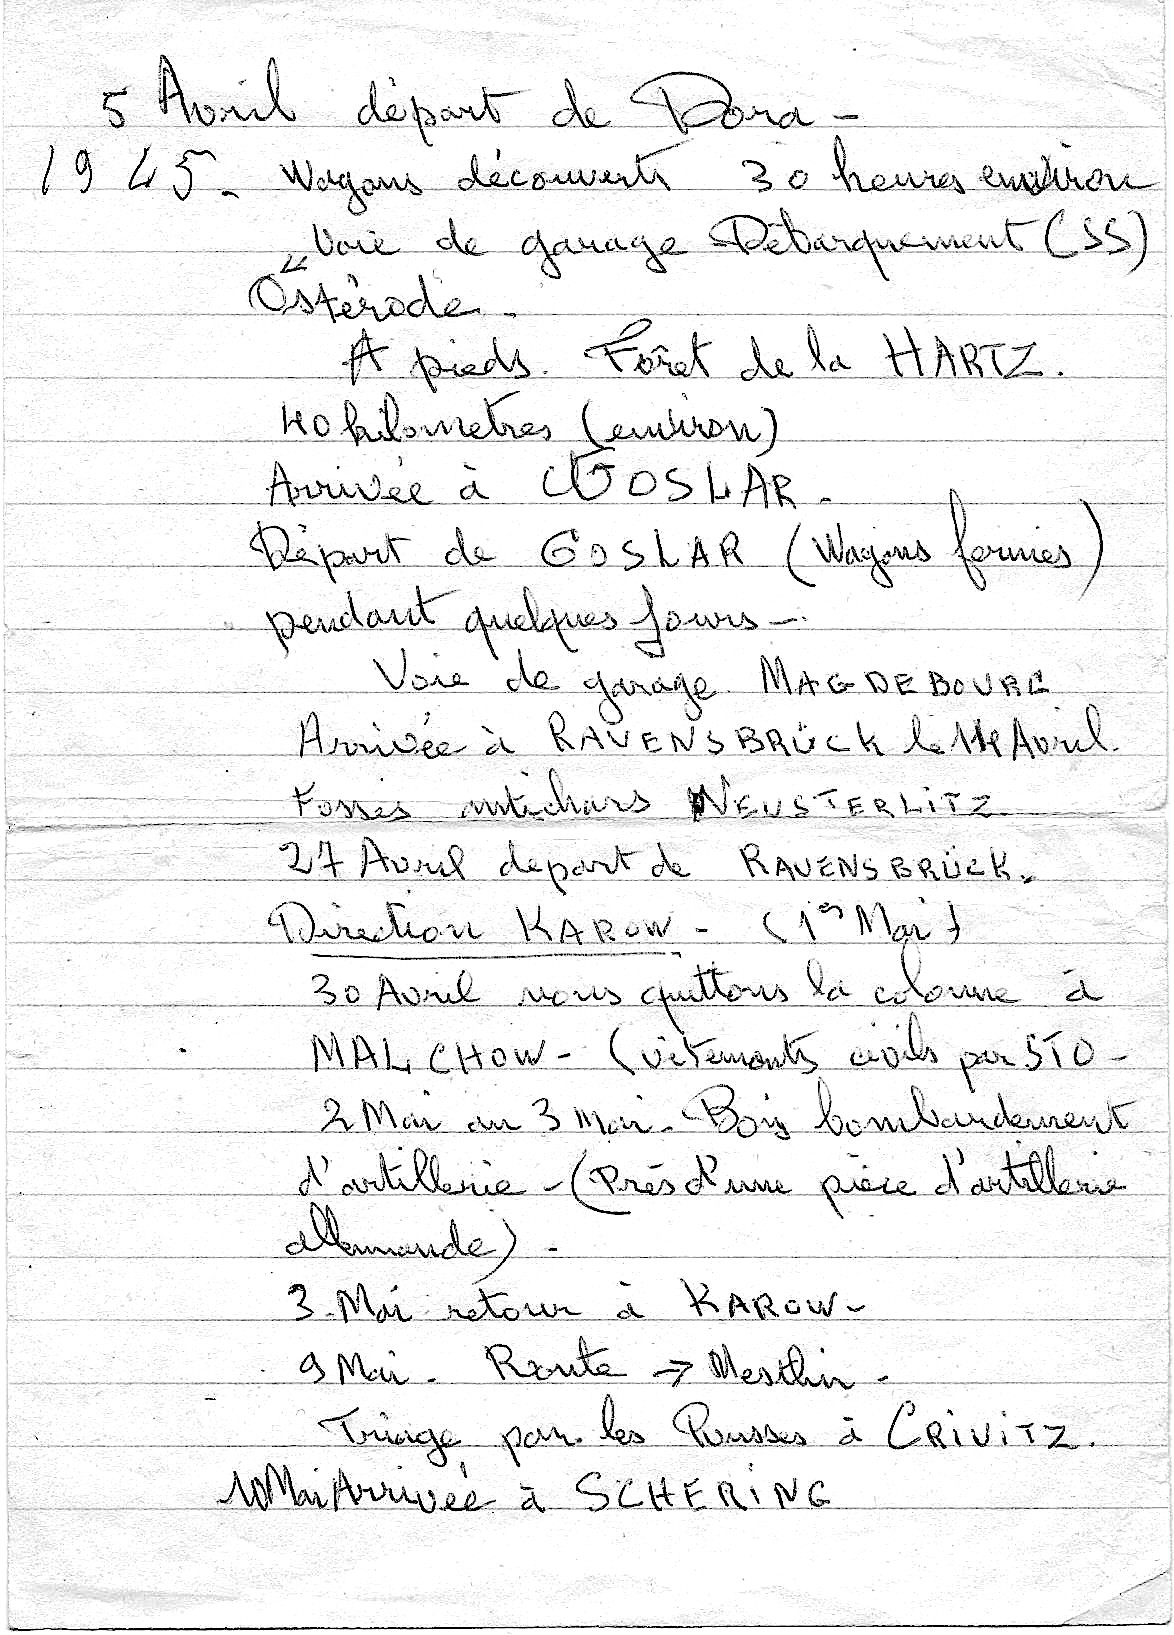 5 Avril départ de Dora -
1945. Wagons découverts 30 heures environ
Voie de garage Débarquement (SS)
Ostérode.
A pieds. Forêt de la HARTZ.
40 kilometres (environ)
Arrivée à GOSLAR.
Départ de GOSLAR (Wagons fermés)
pendant quelques jours -
Voie de garage MAGDEBOURG
Arrivée à RAVENSBRÜCK le 14 Avril.
Fossés antichars NEUSTERLITZ
27 Avril depart de RAVENSBRÜCK.
Direction KAROW - (1er Mai)
30 Avril nous quittons la colonne à
MALCHOW - (vêtements civils par STO -
2 Mai au 3 Mai - Bois bombardement
d'artillerie - (Près d'une pièce d'artillerie
allemande) -
3 Mai retour à KAROW -
9 Mai - Route → Mesthin -
Triage par les Russes à CRIVITZ.
10 Mai Arrivée à SCHERING